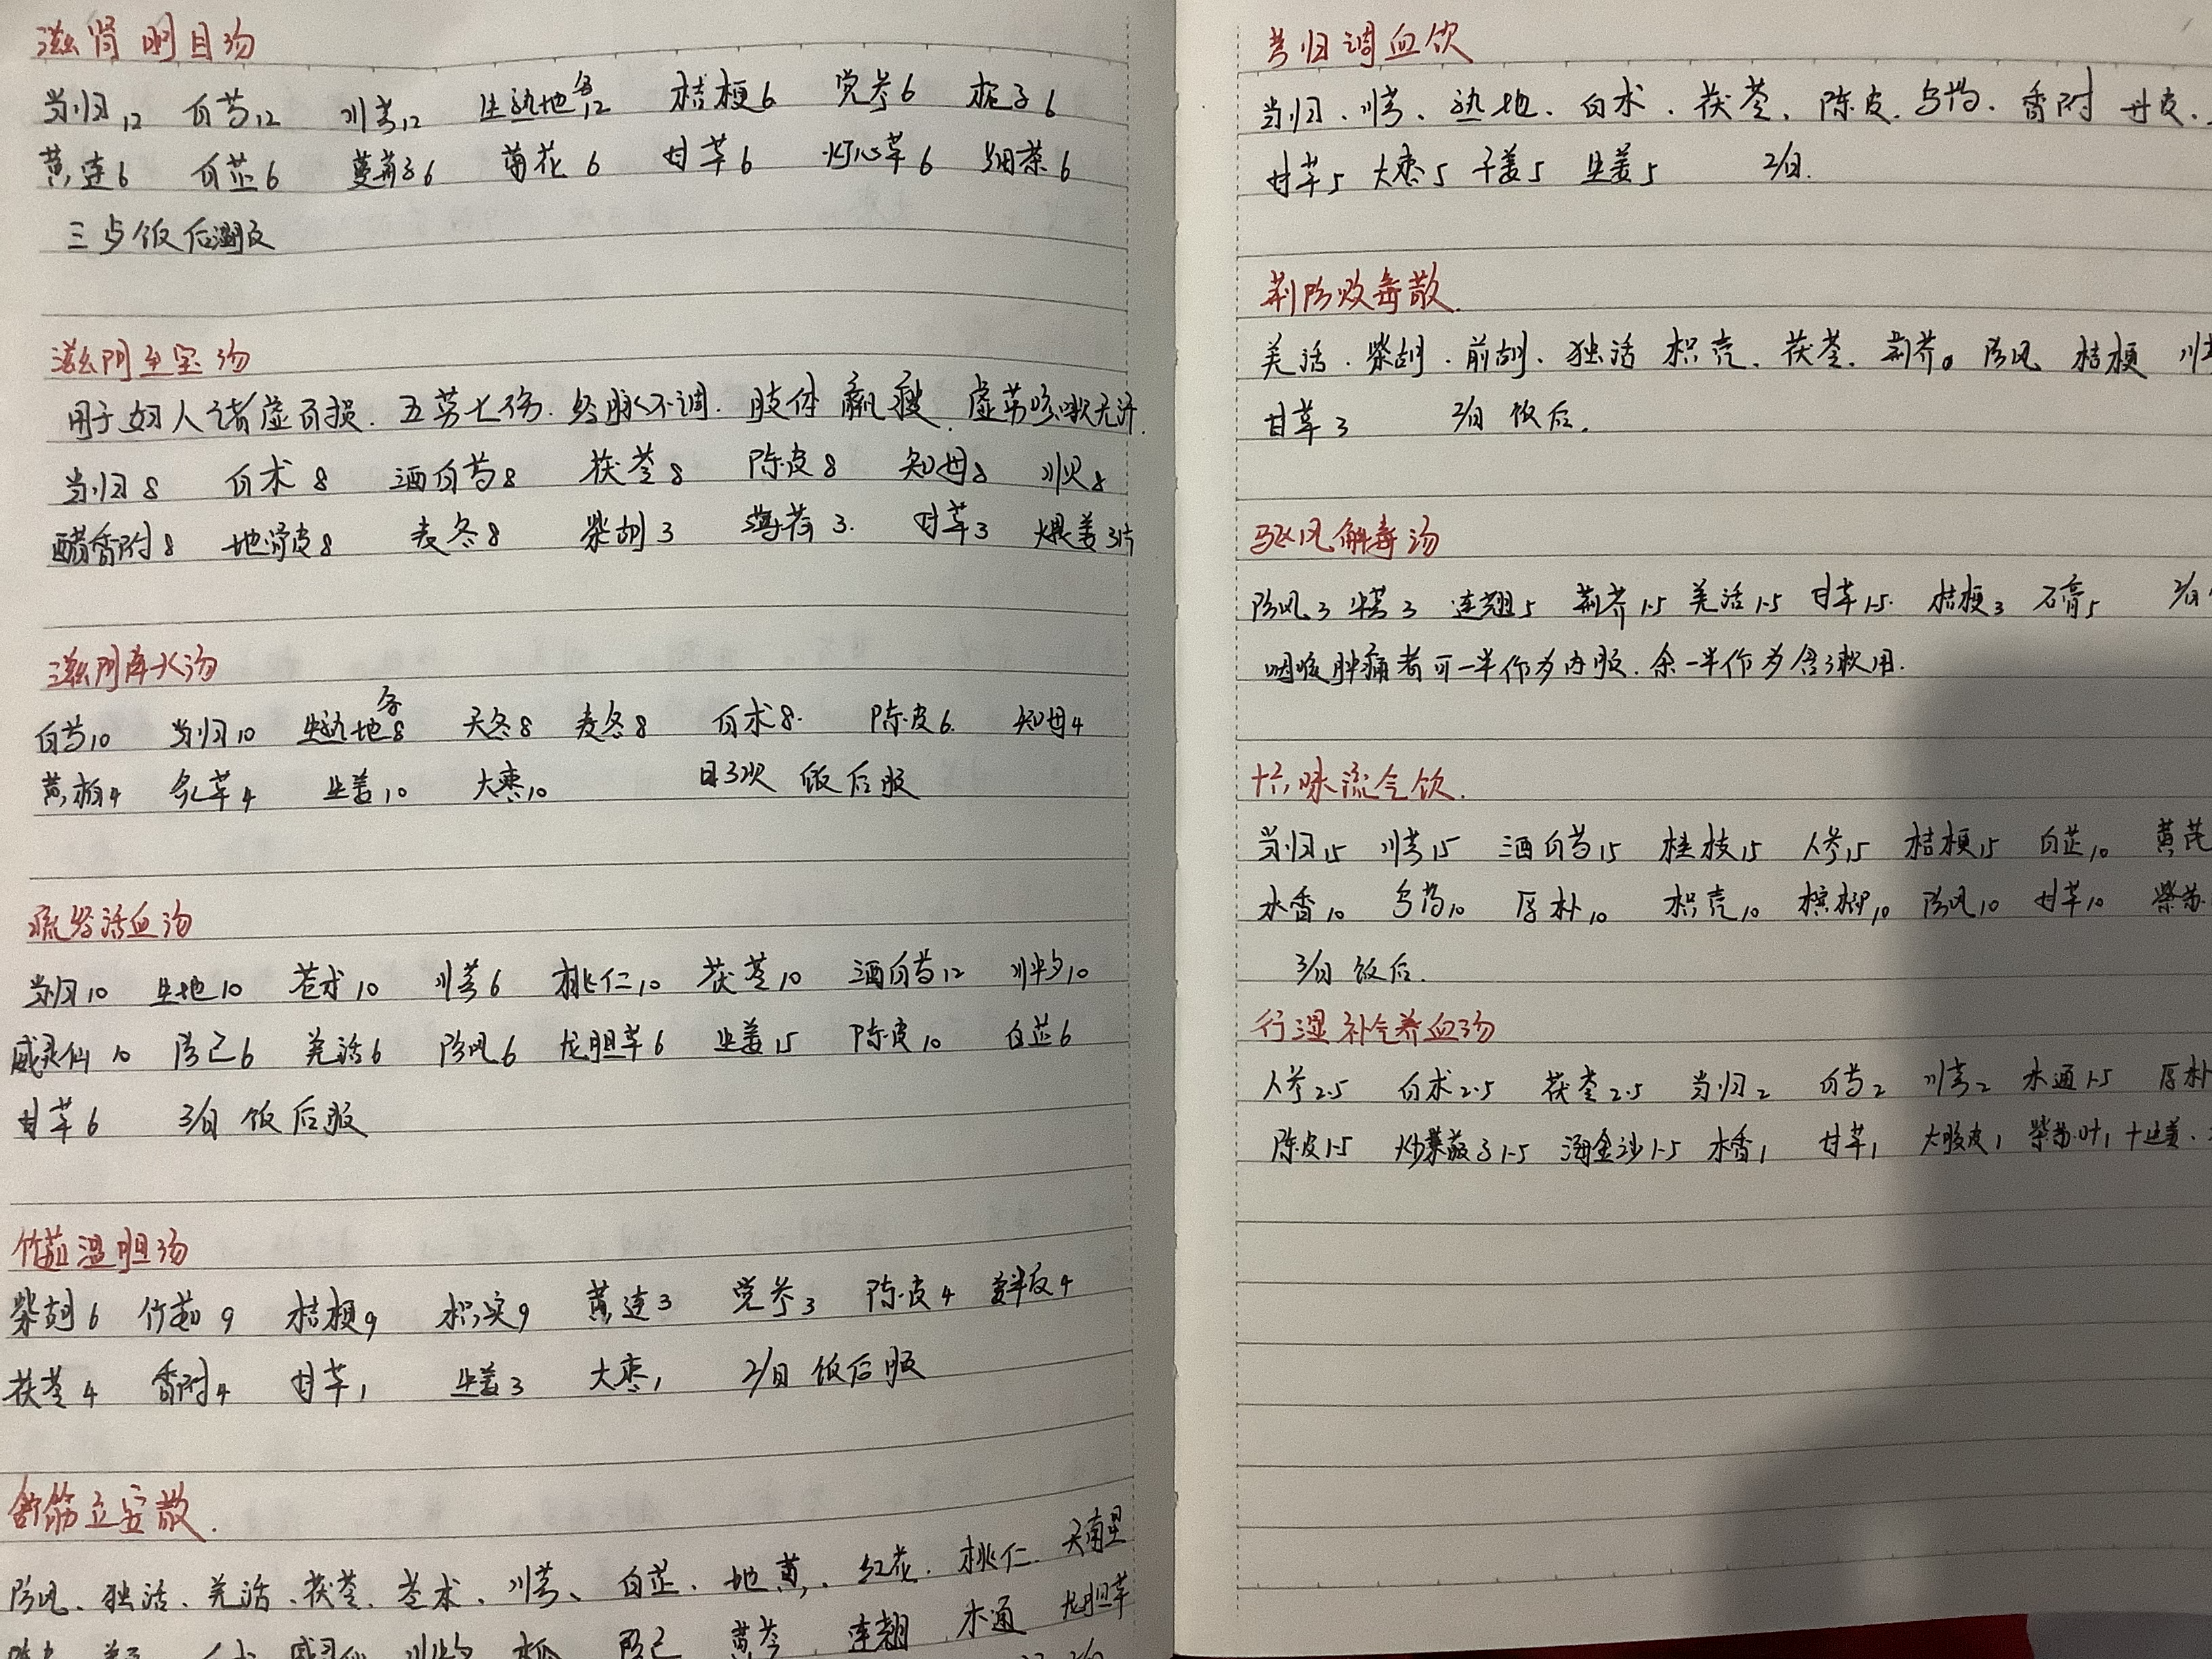 滋肾明目汤
当归12 白芍12 川芎12 生熟地各12 桔梗6 党参6 栀子6
黄连6 白芷6 蔓荆子6 菊花6 甘草6 灯心草6 细茶6
三与饭后温服
滋阴至宝汤
用于妇人诸虚百损.五劳七伤.经脉不调.肢体羸瘦.虚劳咳嗽无汗.
当归8 白术8 酒白芍8 茯苓8 陈皮8 知母8 川贝8
醋香附8 地骨皮8 麦冬8 柴胡3 薄荷3. 甘草3 煨姜3片
滋阴降火汤
白芍10 当归10 生熟地各8 天冬8 麦冬8 白术8. 陈皮6. 知母4
黄柏4 炙草4 生姜10 大枣10 日3次 饭后服
疏经活血汤
当归10 生地10 苍术10 川芎6 桃仁10 茯苓10 酒白芍12 川牛夕10
威灵仙10 防己6 羌活6 防风6 龙胆草6 生姜15 陈皮10 白芷6
甘草6 3/日 饭后服
竹茹温胆汤
柴胡6 竹茹9 桔梗9 枳实9 黄连3 党参3 陈皮4 姜半夏4
茯苓4 香附4 甘草1 生姜3 大枣1 2/日 饭后服
舒筋立安散.
防风、独活、羌活、茯苓、苍术、川芎、白芷、地黄、红花.桃仁.天南星
威灵仙 防己 黄芩 连翘 木通 龙胆草
芎归调血饮
当归、川芎、熟地、白术、茯苓、陈皮.乌药.香附 丹皮.
甘草5 大枣5 干姜5 生姜5 2/日.
荆防败毒散.
羌活.柴胡.前胡、独活 枳壳、茯苓.荆芥。防风 桔梗
甘草3 2/日 饭后.
驱风解毒汤
防风3 牛蒡3 连翘5 荆芥1.5 羌活1.5 甘草1.5. 桔梗3 石膏5 2/日
咽喉肿痛者可一半作为内服.余一半作为含漱用.
十六味流气饮.
当归15 川芎15 酒白芍15 桂枝15 人参15 桔梗15 白芷10 黄芪
木香10 乌药10 厚朴10 枳壳10 槟榔10 防风10 甘草10 紫苏
3/日 饭后.
行湿补气养血汤
人参2.5 白术2.5 茯苓2.5 当归2 白芍2 川芎2 木通1.5 厚朴
陈皮1.5 炒莱菔子1.5 海金沙1.5 木香1 甘草1 大腹皮1 紫苏叶1 十生姜.